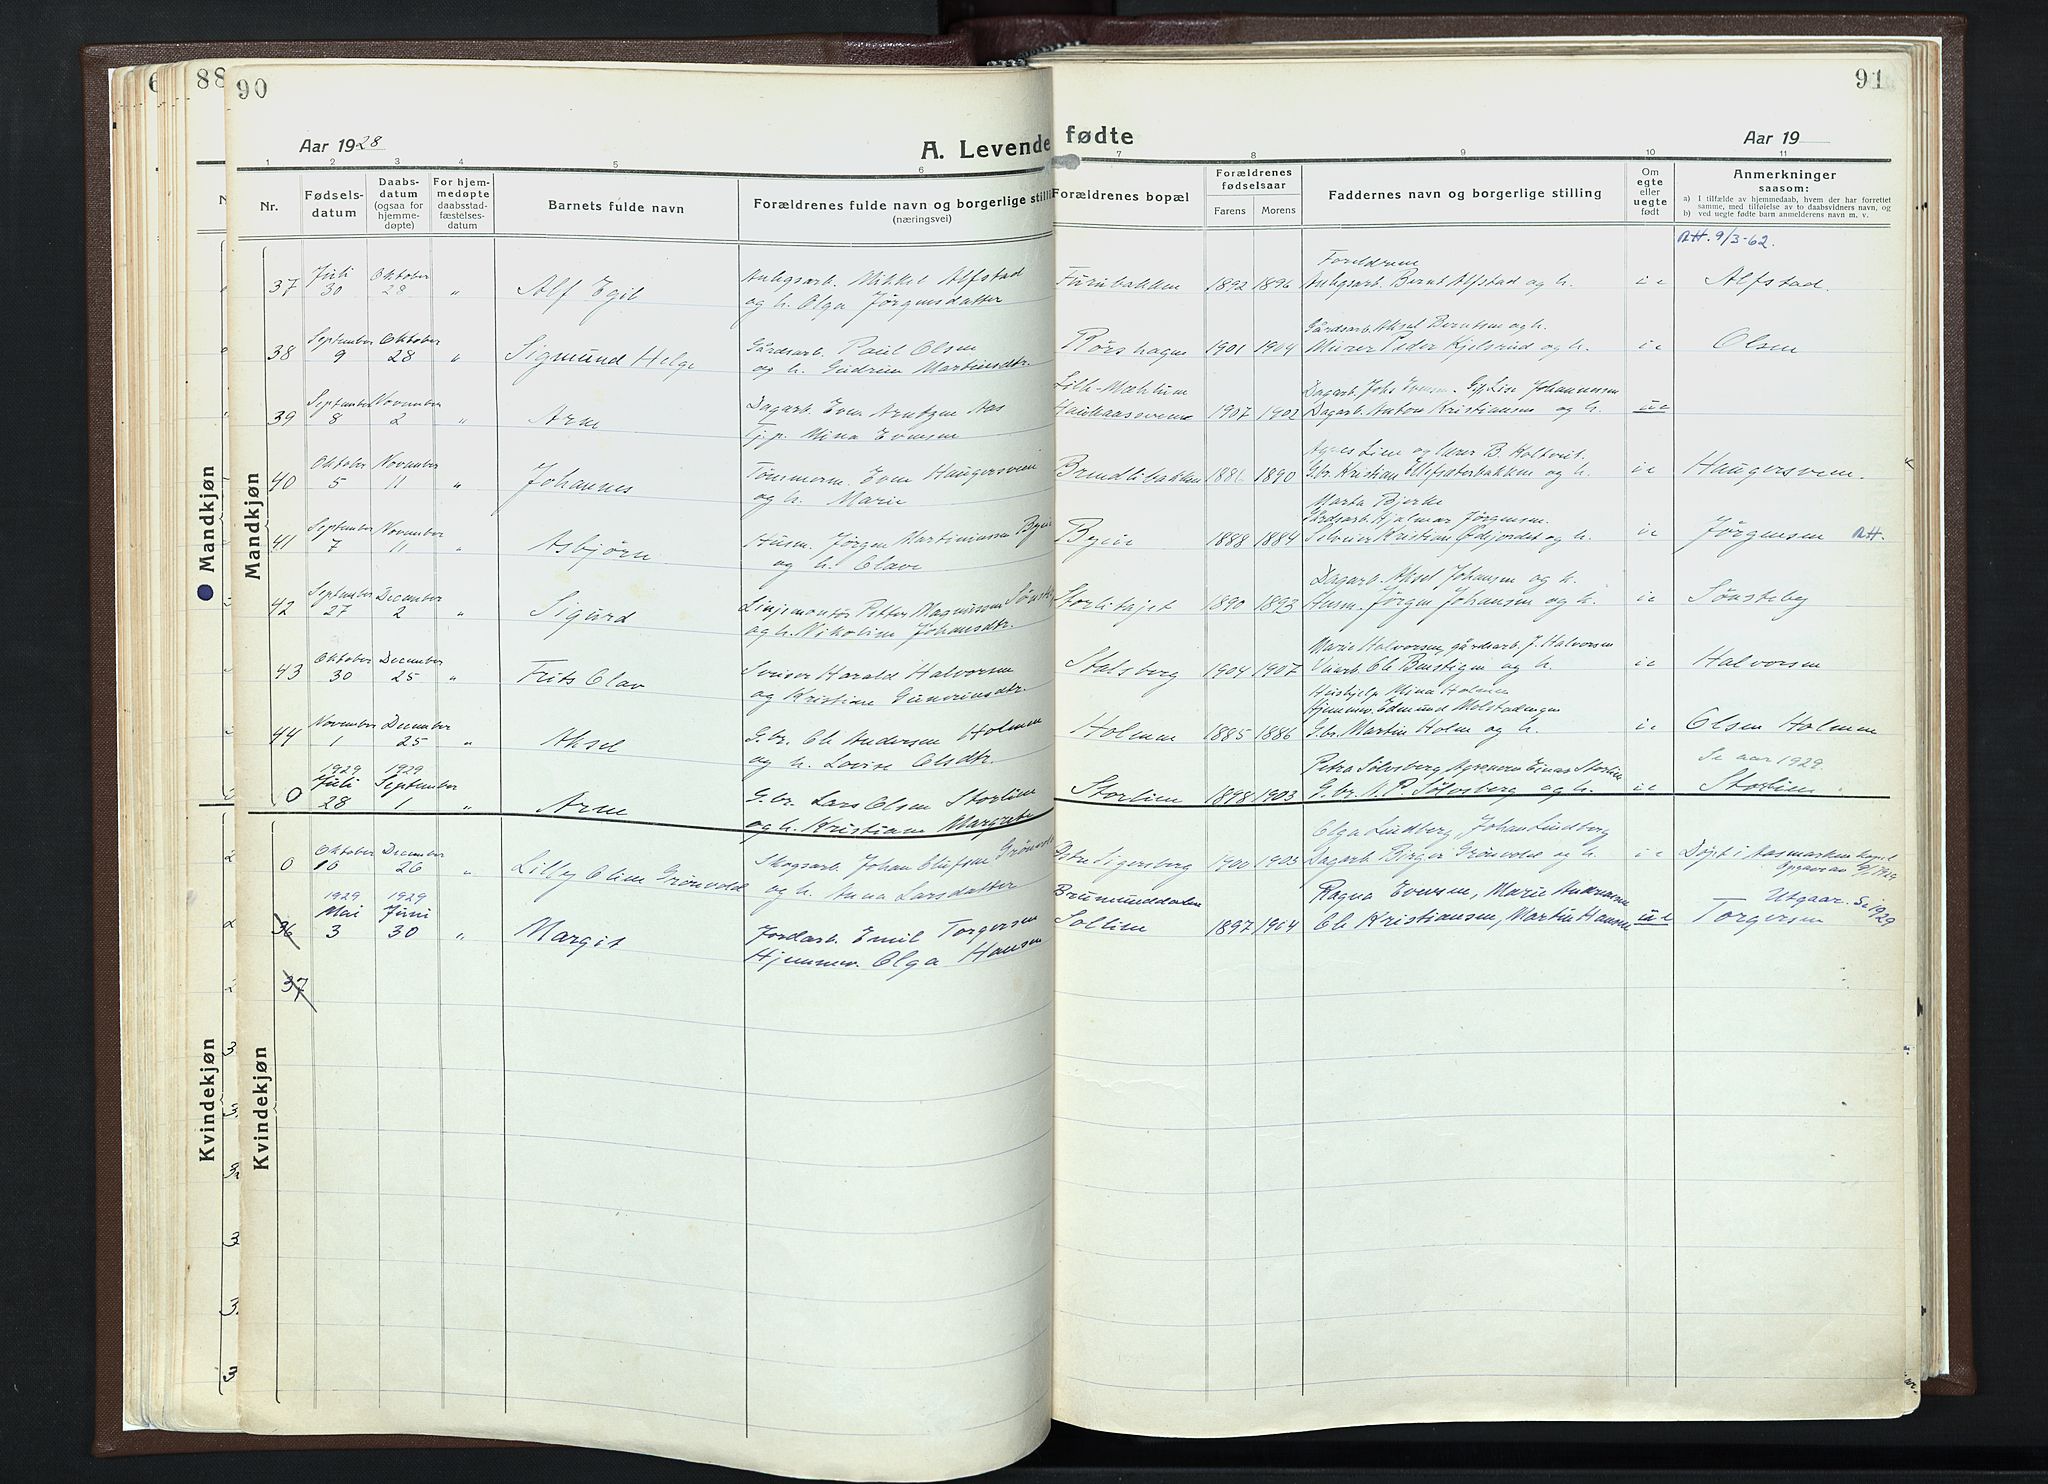 90
88
6
91
Aar 1928
A. Levende fødte
Aar 19
1 2 3 4 5 6 7 8 9 10 11
Nr.
Fødsels-
datum
Daabs-
datum
(ogsaa for
hjemme-
døpte)
For hjem-
medøpte
daabsstad-
fæstelses-
datum
Barnets fulde navn
Forældrenes fulde navn og borgerlige stilli
(næringsvei)
Forældrenes bopæl
Forældrenes
fødselsaar
Farens Morens
Faddernes navn og borgerlige stilling
Om
egte
eller
uegte
født
Anmerkninger
saasom:
a) I tilfælde av hjemmedaab, hvem der har forrettet
samme, med tilføielse av to daabsvidners navn, og
b) ved uegte fødte barn anmelderens navn m. v.
9/3-62.
Mandkjøn
Mandkjøn
37 Juli 30 Oktober 28 " Alf Egil
Anlgsarb. Mikkel Alfstad
og h. Olga Jørgensdatter
Furubakken 1892 1896
Foreldrene
Anlgsarb. Bernt Alfstad og h. i e Alfstad.
38 September 9 Oktober 28 " Sigmund Helge
Gårdsarb. Paul Olsen
og h. Gudrun Martinsdtr.
1901 1904
Gårdsarb. Aksel Berntsen og h.
Murer Peder Kjelsrud og h. i e Olsen
39 September 8 November 2 " Arne
Dagarb. Even Arntzen Aas
Tj.p. Mina Evensen
1907 1902
Dagarb. Johs Evensen. Lise Johannessen
Dagarb. Anton Kristiansen og h. u e
40 Oktober 5 November 11 " Johannes
Tømmerm. Even Haugersveen
og h. Marie
Brendlibakken 1886 1890
Agnes Lien og lærer B. Holtvit.
G.br. Kristian Ellefsæterbakken og h. i e Haugersveen.
41 September 7 November 11 " Asbjørn
Husm. Jørgen Martiniussen Byeie
og h. Olave
Byeie 1888 1884
Marta Bjerke
Gårdsarb. Hjalmar Jørgensen.
Selveier Kristian Ødejordet og h. i e Jørgensen
42 September 27 December 2 " Sigurd
Linjemontør Petter Magnussen Sønste
og h. Nikoline Johansdtr.
Storlitajet 1890 1893
Dagarb. Aksel Johansen og h.
Husm. Jørgen Johansen og h. i e Sønsteby
43 Oktober 30 December 25 " Frits Olav
Sveiser Harald Halvorsen
og Kristiane Gunerinsdtr.
Stalsberg 1904 1907
Marie Halvorsen, gårdsarb. J. Halvorsen
Ole Benstigen og h. i e Halvorsen
44 November 1 December 25 " Aksel
G.br. Ole Andersen Holmen
og h. Lovise Olsdtr.
Holmen 1885 1886
Hushjelp Mina Holmen
Hjemmev. Edmund Melstadengen
G.br. Martin Holm og h. i e Olsen Holmen
0 1929 Juli 28 1929 September 1 " Arne
G.br. Lars Olsen Storlien
og h. Kristiane Margrete
Storlien 1898 1903
Petra Sølvsberg Einar Storlien
G.br. N. P. Sølvsberg og h. i e Se aar 1929.
Storlien
Kvindekjøn
Kvindekjøn
0 Oktober 10 December 26 " Lilly Oline Grønvold
Skogsarb. Johan Olufsen Grønvold
og h. Anna Larsdatter
Østre Sigersberg 1900 1903
Olga Lindberg, Johan Lindberg
Dagarb. Birger Grønvold og h. i e Døpt i Aasmarken
36 1929 Mai 3 1929 Juni 30 " Margit
Jordarb. Emil Torgersen
Hjemmev. Olga Hansen
Brumunddalen
Sollien 1897 1904
Ragna Evensen, Marie Andersen
Ole Kristiansen, Martin Hansen u e Utgaar. Se 1929
Torgersen
37